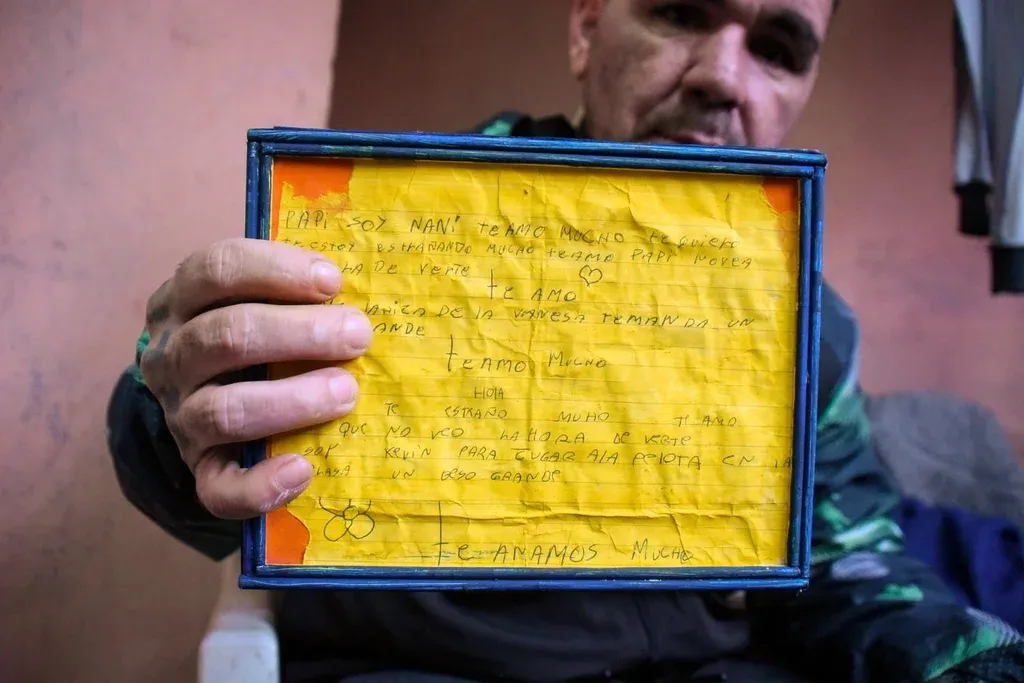 PAPI SOY NANI TEAMO MUCHO TE QUIERO
TE ESTOY ESTRAÑANDO MUCHO TEAMO PAPI NOVEA
DE VERTE
tE AMO
DE LA VANESA TEMANDA UN
ANDE
tEAMO MUCHO
HOIA
TE ESTRAÑO MUHO TE AMO
QUE NO VEO LAHORA DE VERTE
SOY KEVIN PARA JUGAR ALA PELOTA EN LA
UN BESO GRANDE
tE AMAMOS MUCHO